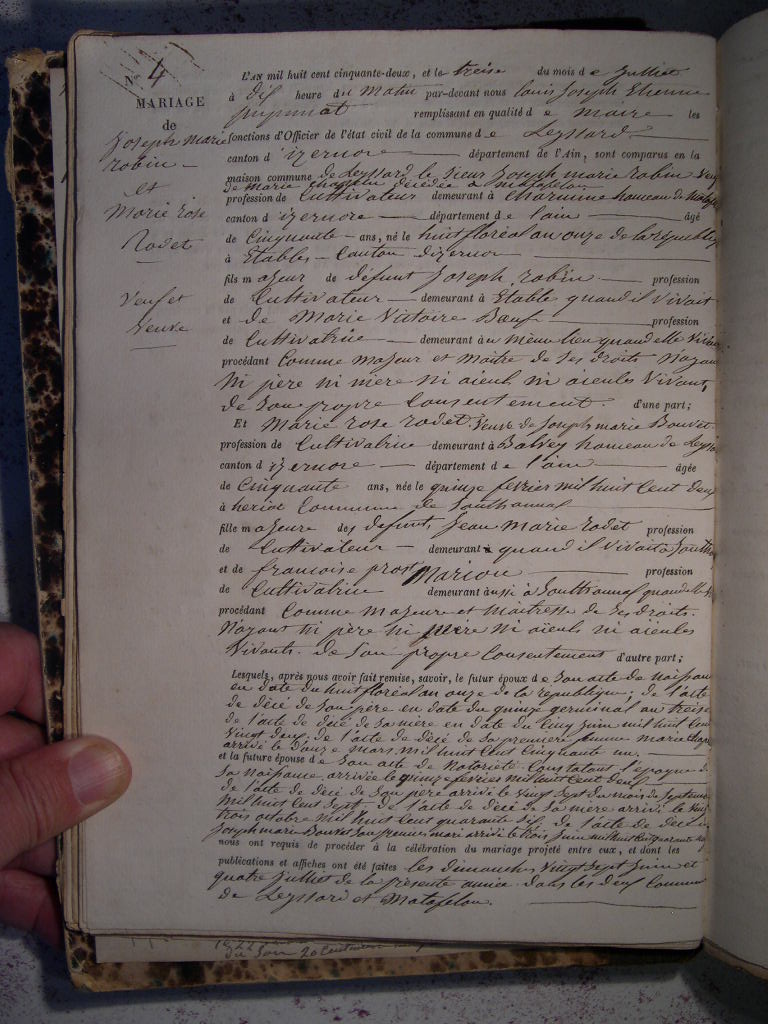 N° 4
MARIAGE
de
Joseph Marie
robin –
et
Marie rose
Rodet
Veuf et
Veuve
L'AN mil huit cent cinquante-deux, et le treise du mois de Juillet
à dix heure du Matin par-devant nous louis Joseph Etienne
remplissant en qualité de maire les
fonctions d'Officier de l'état civil de la commune de Leyssard
canton d'izernore département de l'Ain, sont comparus en la
maison commune de Leyssard le sieur Joseph marie robin Veuf
de marie décédée à matafelon
profession de Cultivateur demeurant à Charmine hameau de
canton d'izernore département de l'ain âgé
de Cinquante ans, né le huit floréal an onze de la république
à Etables Canton dizernore
fils majeur de défunt Joseph robin profession
de Cultivateur demeurant à Etable quand il vivait
et de Marie Victoire Bœuf profession
de Cultivatrice demeurant à u même lieu quand elle
procédant Comme majeur et maitre de ses droits N'ayant
Ni père ni mère ni aïeuls ni aïeules Vivants
de son propre Consentement. d'une part;
Et Marie rose rodet Veuve de Joseph marie Bouvet
profession de Cultivatrice demeurant à Balvey hameau de
canton d'izernore département de l'ain âgée
de Cinquante ans, née le quinze fevrier mil huit Cent deux
à heriat Commune de Sonthonnax
fille majeure des defunts Jean Marie rodet profession
de Cultivateur demeurant quand il vivait à
et de francoise prost Marion profession
de Cultivatrice demeurant aussi à Sonthonnax quand elle
procédant Comme Majeure et maitresse de ses droits.
N'ayant ni père ni mère ni aïeuls ni aïeules
Vivants. de son propre Consentement d'autre part;
Lesquels, après nous avoir fait remise, savoir, le futur époux de son acte de naissance
en date du huit floréal an onze de la republique; de l'acte
de décé de son père en date du quinze germinal an treise
de l'acte de décé de sa mère en date du Cinq Juin mil huit Cent
Vingt deux; de l'acte de décé de sa première femme marie
arrivé le Douze mars mil huit Cent Cinquante un.
et la future épouse de son acte de Notoriété Constatant l'époque de
sa naissance, arrivée le quinze fevrier mil huit Cent deux
de l'acte de décé de son père arrivé le Vingt Sept du mois de Septembre
mil huit Cent Sept, de l'acte de décé de sa mère arrivé le Vingt
trois octobre mil huit Cent quarante dix. de l'acte de décé de
Joseph marie Bouvet son premier mari arrivé le trois Juin mil huit Cent quarante
nous ont requis de procéder à la célébration du mariage projeté entre eux, et dont les
publications et affiches ont été faites les dimanches Vingt Sept Juin et
quatre Juillet de la présente année dans les deux Communes
de Leyssard et Matafelon.